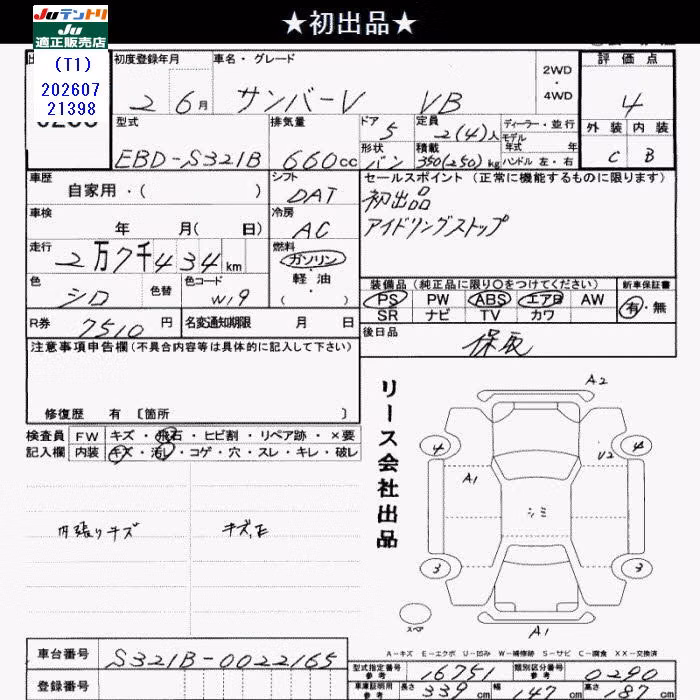 ★初出品★
Juテントリ
Ju
適正販売店
(T1)
202607
21398
初度登録年月
2 6月
車名・グレード
サンバーV VB
2WD
・
4WD
評価点
4
外装 内装
C B
型式
EBD-S321B
排気量
660cc
ドア
5
形状
バン
定員
2(4)人
積載
350(250)kg
ディーラー・並行
モデル
年式 年
ハンドル 左・右
車歴
自家用・( )
シフト
DAT
セールスポイント (正常に機能するものに限ります)
初出品
アイドリングストップ
車検
年 月( 日)
冷房
AC
走行
2万7千434km
燃料
ガソリン
・
軽油
・
( )
色
シロ
色替
色コード
W19
装備品(純正品に限り○をつけてください)
PS PW ABS エアB AW
SR ナビ TV カワ
新車保証書
有・無
R券
7510円
名変通知期限 月 日
後日品
保取
注意事項申告欄(不具合内容等は具体的に記入して下さい)
修復歴 有 〔箇所 〕
検査員
記入欄
FW キズ・飛石・ヒビ割・リペア跡・×要
内装 キズ・汚レ・コゲ・穴・スレ・キレ・破レ
内張りキズ
リース会社出品
A2
4
4
A1
U2
シミ
3
3
スペア
A1
A-キズ E-エクボ U-凹み W-補修跡 S-サビ C-腐食 XX-交換済
車台番号
S321B-0022165
登録番号
型式指定番号
参考
16751
類別区分番号
参考
0290
車庫証明用
参考
長さ 339cm 幅 147cm 高さ 187cm